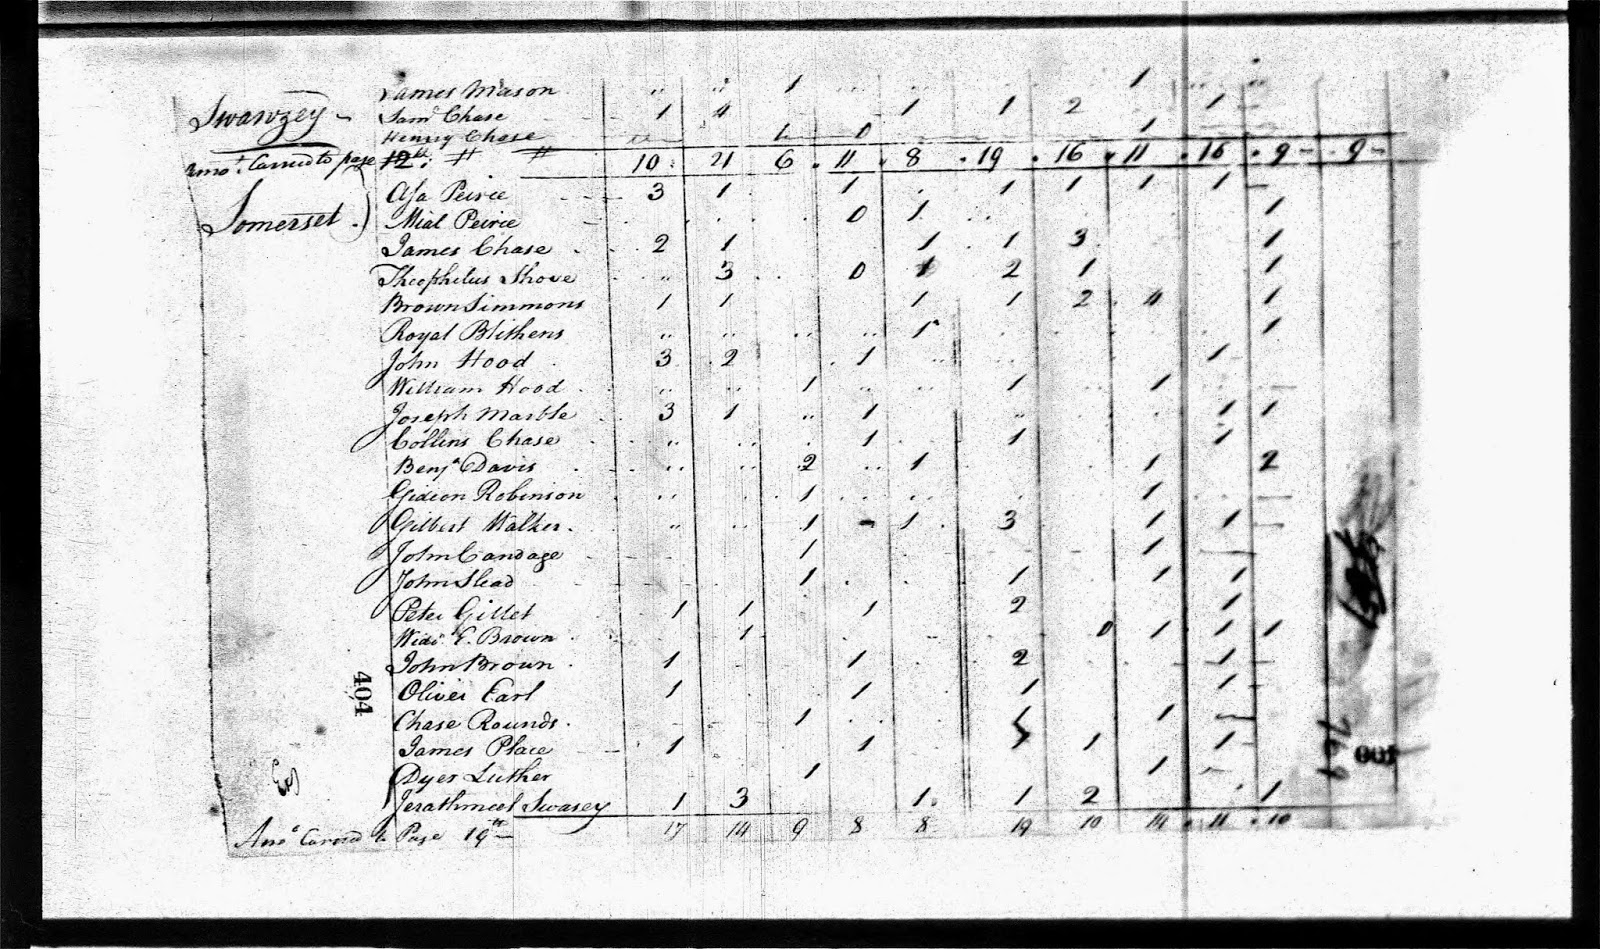 James Mason " " 1 .. .. .. .. 1 .. ..
Swanzey - Saml Chase 1 4 1 1 2 1 -
Henry Chase 0 1
Amot. Carried to page 12th: " " 10 21 6 11 8 19 16 11 16 9 - 9 -
Somerset. Asa Peirce 3 1 1 1 1 1 1 -
Mial Peirce 0 1 1
James Chase 2 1 1 1 3 1
Theophelus Shove " 3 0 1 2 1 1
Brown Simmons 1 1 1 1 2 4 1
Royal Blithens " " " " 1 1
John Hood 3 2 1 1
William Hood 1 1 1
Joseph Marble 3 1 " 1 " 1 1
Collins Chase " " 1 1 1
Benja Davis " " 2 " 1 1 2
Gideon Robinson " " 1 1
Gilbert Walker. " " 1 - 1 3 1 1
John Candage 1 1 -
John Slead 1 1 1 1
Peter Gillet 1 1 1 2 1
Wido. E. Brown 1 0 1 1 1
John Brown 1 1 2 1
Oliver Earl 1 1 1 1
Chase Rounds. 1 1 -
James Place 1 1 1 1
Dyer Luther 1 1
Jerathmeel Swasey 1 3 1 1 2 1
Amo Carried to Page 19th - 17 14 9 8 8 19 10 14 11 10
404